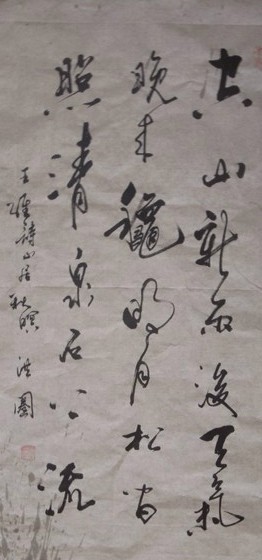 空山新雨後天氣
晚来龝明月松间
照清泉石上流
王維詩山居秋暝